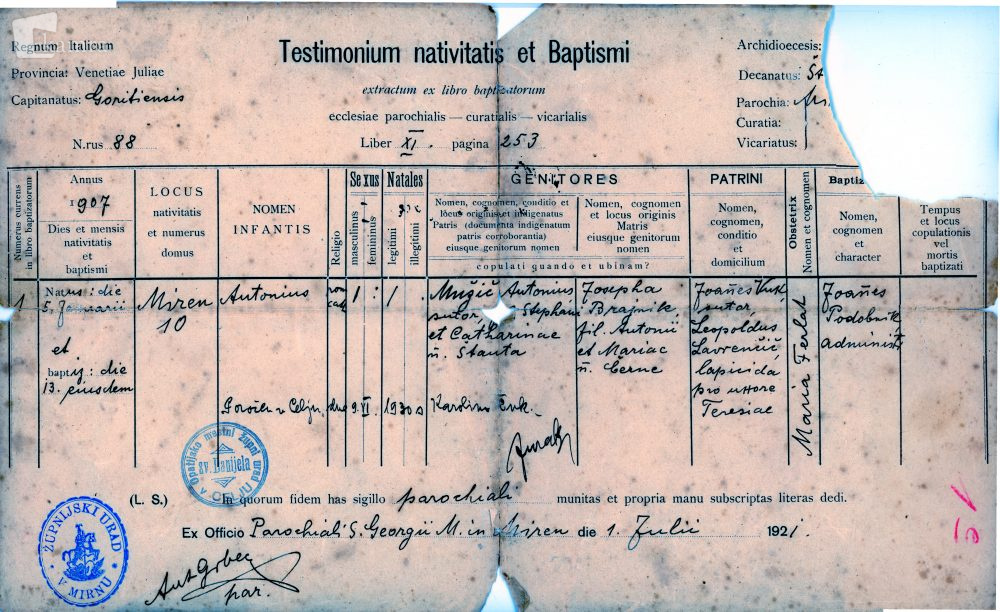 Regnum Italicum
Provincia: Venetiae Juliae
Capitanatus: Goritiensis
N.rus 88
Testimonium nativitatis et Baptismi
extractum ex libro baptizatorum
ecclesiae parochialis — curatialis — vicarialis
Liber XI. pagina 253
Archidioecesis:
Decanatus: Št
Parochia:
Curatia:
Vicariatus:
Numerus currens
in libro baptizatorum
Annus
1907
Dies et mensis
nativitatis
et
baptismi
LOCUS
nativitatis
et numerus
domus
NOMEN
INFANTIS
Religio
Sexus
masculinus
femininus
Natales
legitimi
illegitimi
GENITORES
Nomen, cognomen, conditio et
locus originis et indigenatus
Patris (documenta indigenatum
patris corroborantia)
eiusque genitorum nomen
Nomen, cognomen
et locus originis
Matris
eiusque genitorum
nomen
copulati quando et ubinam?
PATRINI
Nomen,
cognomen,
conditio
et
domicilium
Obstetrix
Nomen et cognomen
Baptiz
Nomen,
cognomen
et
character
Tempus
et locus
copulationis
vel
mortis
baptizati
1
Natus: die
5. Januarii
et
bapt: die
13. ejusdem
Miren
10
Antonius
rom
cath
1
:
1
Mužič Antonius
sutor, Stephani
et Catharinae
n. Stanta
Josepha
Brajnik,
fil. Antonii
et Mariae
n. Černe
Joañes Vuk
sutor,
Leopoldus
Lavrenčič,
lapicida
pro uxore
Teresiae
Maria Ferlat
Joañes
Podobnik,
administ
Poročen v Celju, dne 9. VI. 1930 s Karolino
Opatijsko mestni župni urad
sv. Danijela
v CELJU
(L. S.)
In quorum fidem has sigillo parochiali munitas et propria manu subscriptas literas dedi.
Ex Officio Parochiali S. Georgii M. in Miren die 1. Julii 1921.
ŽUPNIJSKI URAD
V MIRNU
Ant Grbec
par.